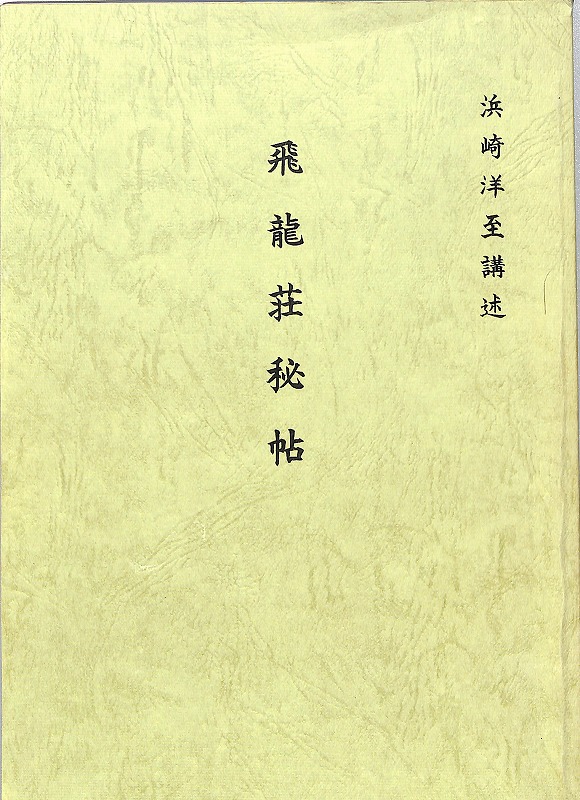 浜崎洋至講述
飛龍荘秘帖